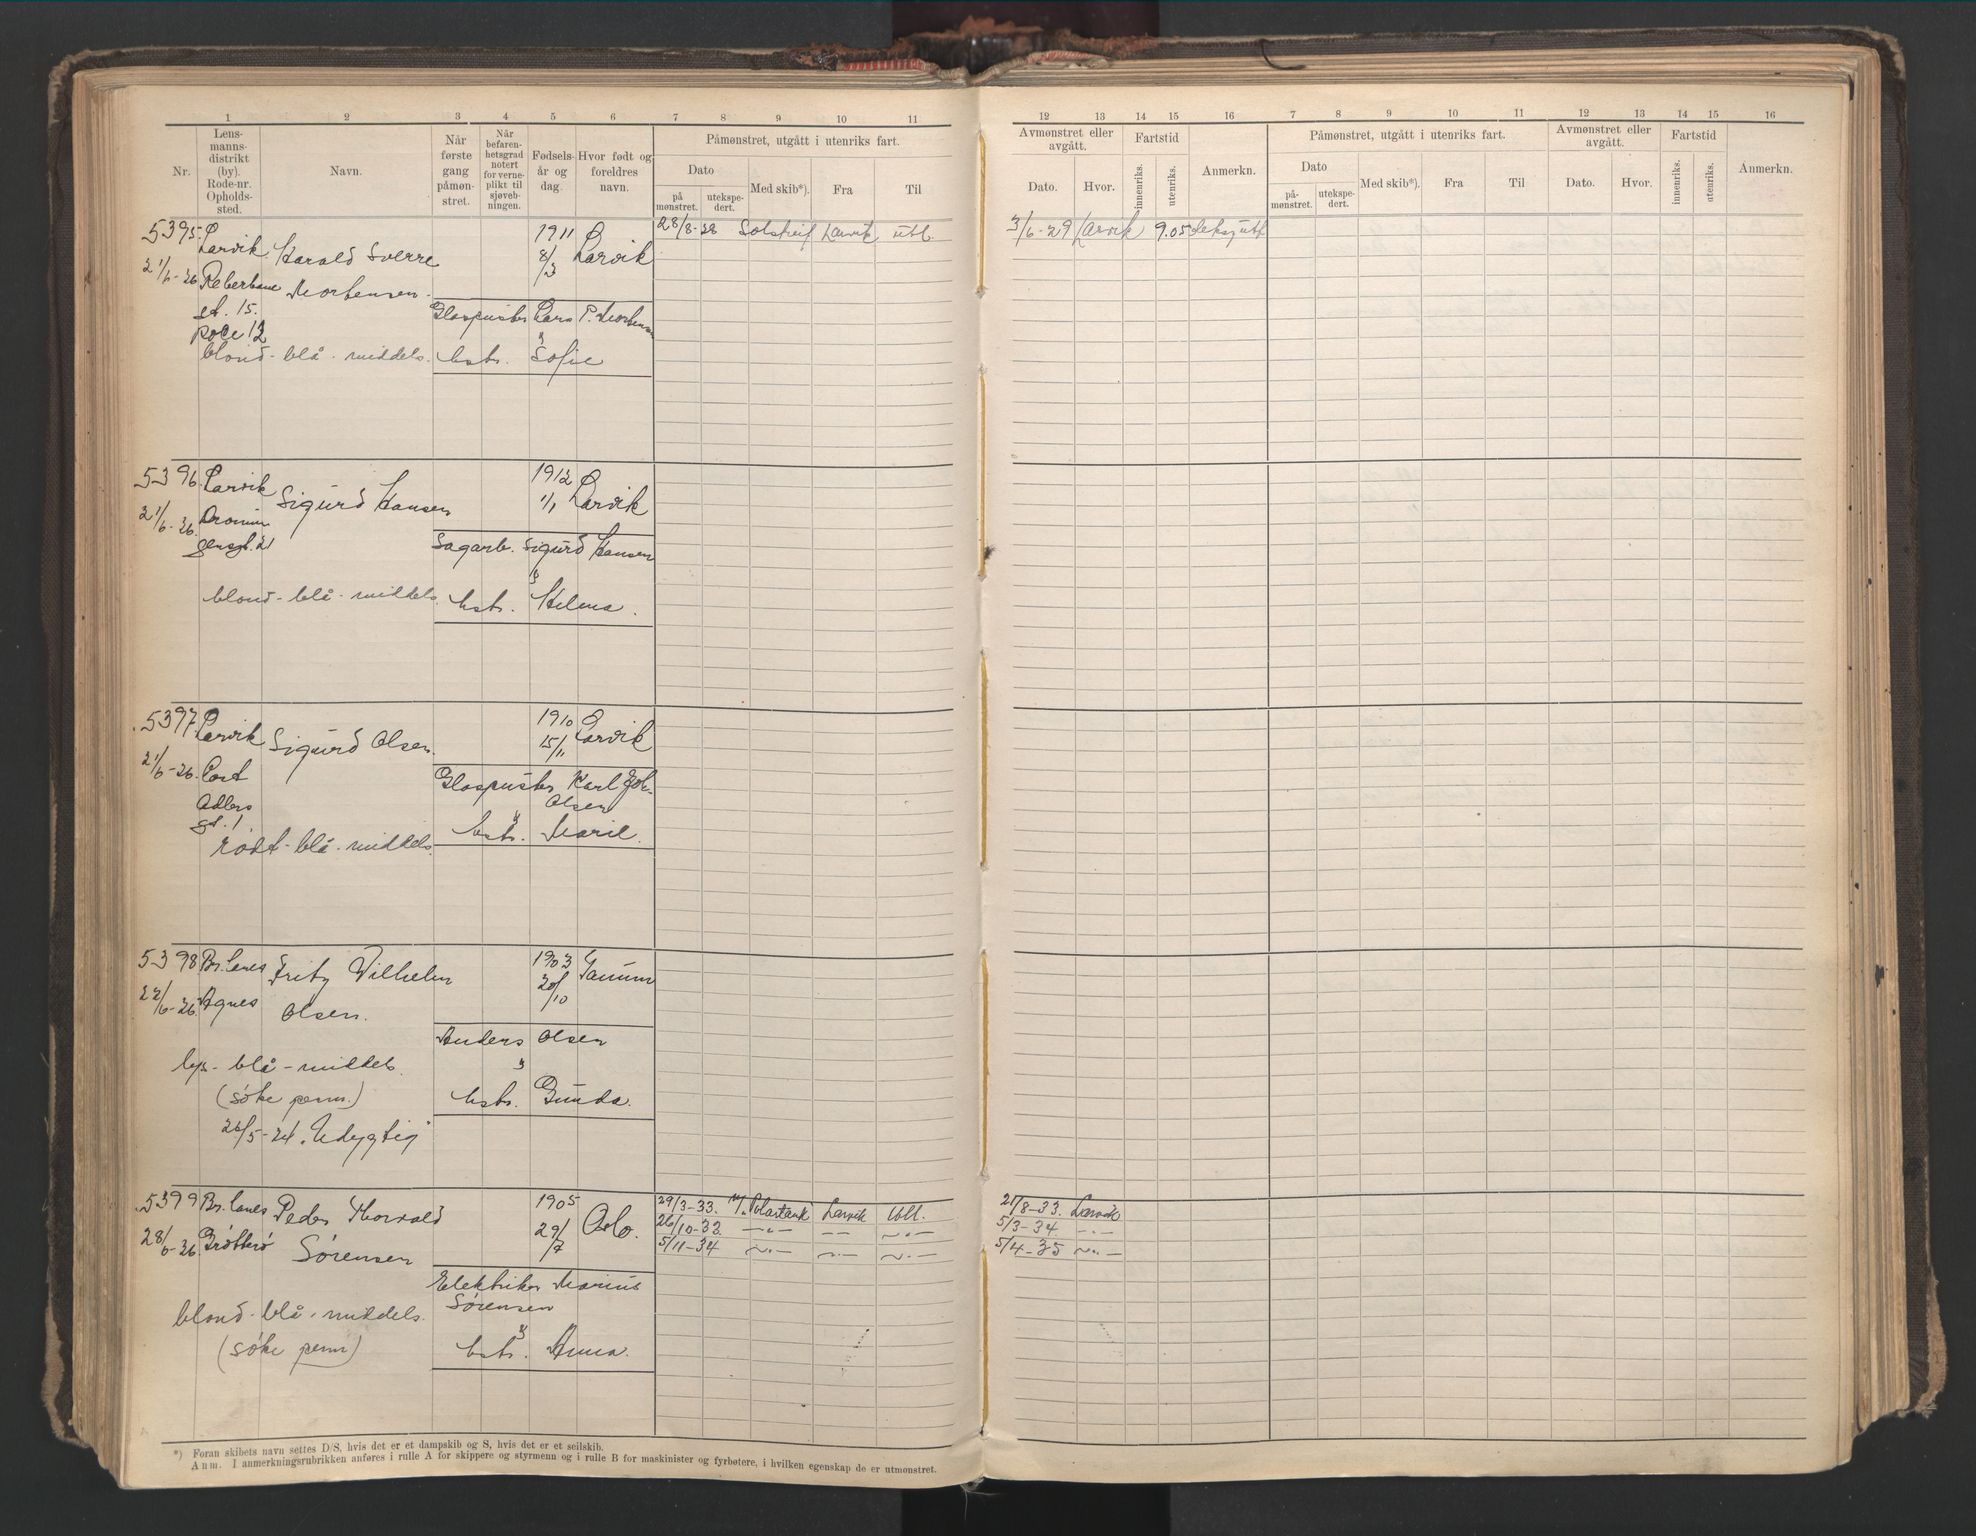 1 2 3 4 5 6 7 8 9 10 11
Nr.
Lens-
manns-
distrikt
(by).
Rode-nr.
Opholds-
sted.
Navn.
Når
første
gang
påmøn-
stret.
Når
befaren-
hetsgrad
notert
for verne-
plikt til
sjøveb-
ningen.
Fødsels-
år og
dag.
Hvor født og
foreldres
navn.
Påmønstret, utgått i utenriks fart.
Dato
på
mønstret.
utekspe-
dert.
Med skib*).
Fra
Til
12 13 14 15 16 7 8 9 10 11 12 13 14 15 16
Avmønstret eller
avgått.
Dato. Hvor.
Fartstid
innenriks.
utenriks.
Anmerkn.
Påmønstret, utgått i utenriks fart.
Dato
på-
mønstret.
utekspe-
dert.
Med skib*).
Fra
Til
Avmønstret eller
avgått.
Dato. Hvor.
Fartstid
innenriks.
utenriks.
Anmerkn.
5395 Larvik Harald Sverre 1911 Larvik 28/8-28 Solstreif Larvik utl. 3/6-29 Larvik 9.05
21/6-26 Reberbane Mortensen 8/3
gt. 15. Glaspuster Lars P. Mortensen
rode 12
blond - blå - middels. hstr. Sofie
5396 Larvik Sigurd Hansen 1912 Larvik
21/6-26 1/1
gensgt. 21 Sagarb. Sigurd Hansen
blond - blå - middels. hstr. Helma.
5397 Larvik Sigurd Olsen. 1910 Larvik
21/6-26. Cort 15/11
Adlers Glaspuster Karl Joh.
gt. 1 Olsen
rødt - blå - middels. hstr. Marie.
5398 Br.lanes Fritz Vilhelm 1903 Tanum
22/6-26 Agnes Olsen. 20/10
Anders Olsen
lys - blå - middels.
(søke perm.) hstr. Gunda.
Udygtig
5399 Br.lanes Peder Thorvald 1905 Oslo. 29/3-33. M/. Polartank Larvik Utl. 21/8-33. Larvik
28/6-26 Grøtterø Sørensen 29/7 26/10-33. -„- -„- -„- 5/3-34. -„-
5/11-34 -„- -„- -„- 5/4-35 -„-
Elektriker Marius
Sørensen
blond - blå - middels.
(søke perm) hstr. Anna.
*) Foran skibets navn settes D/S, hvis det er et dampskib og S, hvis det er et seilskib.
Anm. I anmerkningsrubrikken anføres i rulle A for skippere og styrmenn og i rulle B for maskinister og fyrbøtere, i hvilken egenskap de er utmønstret.